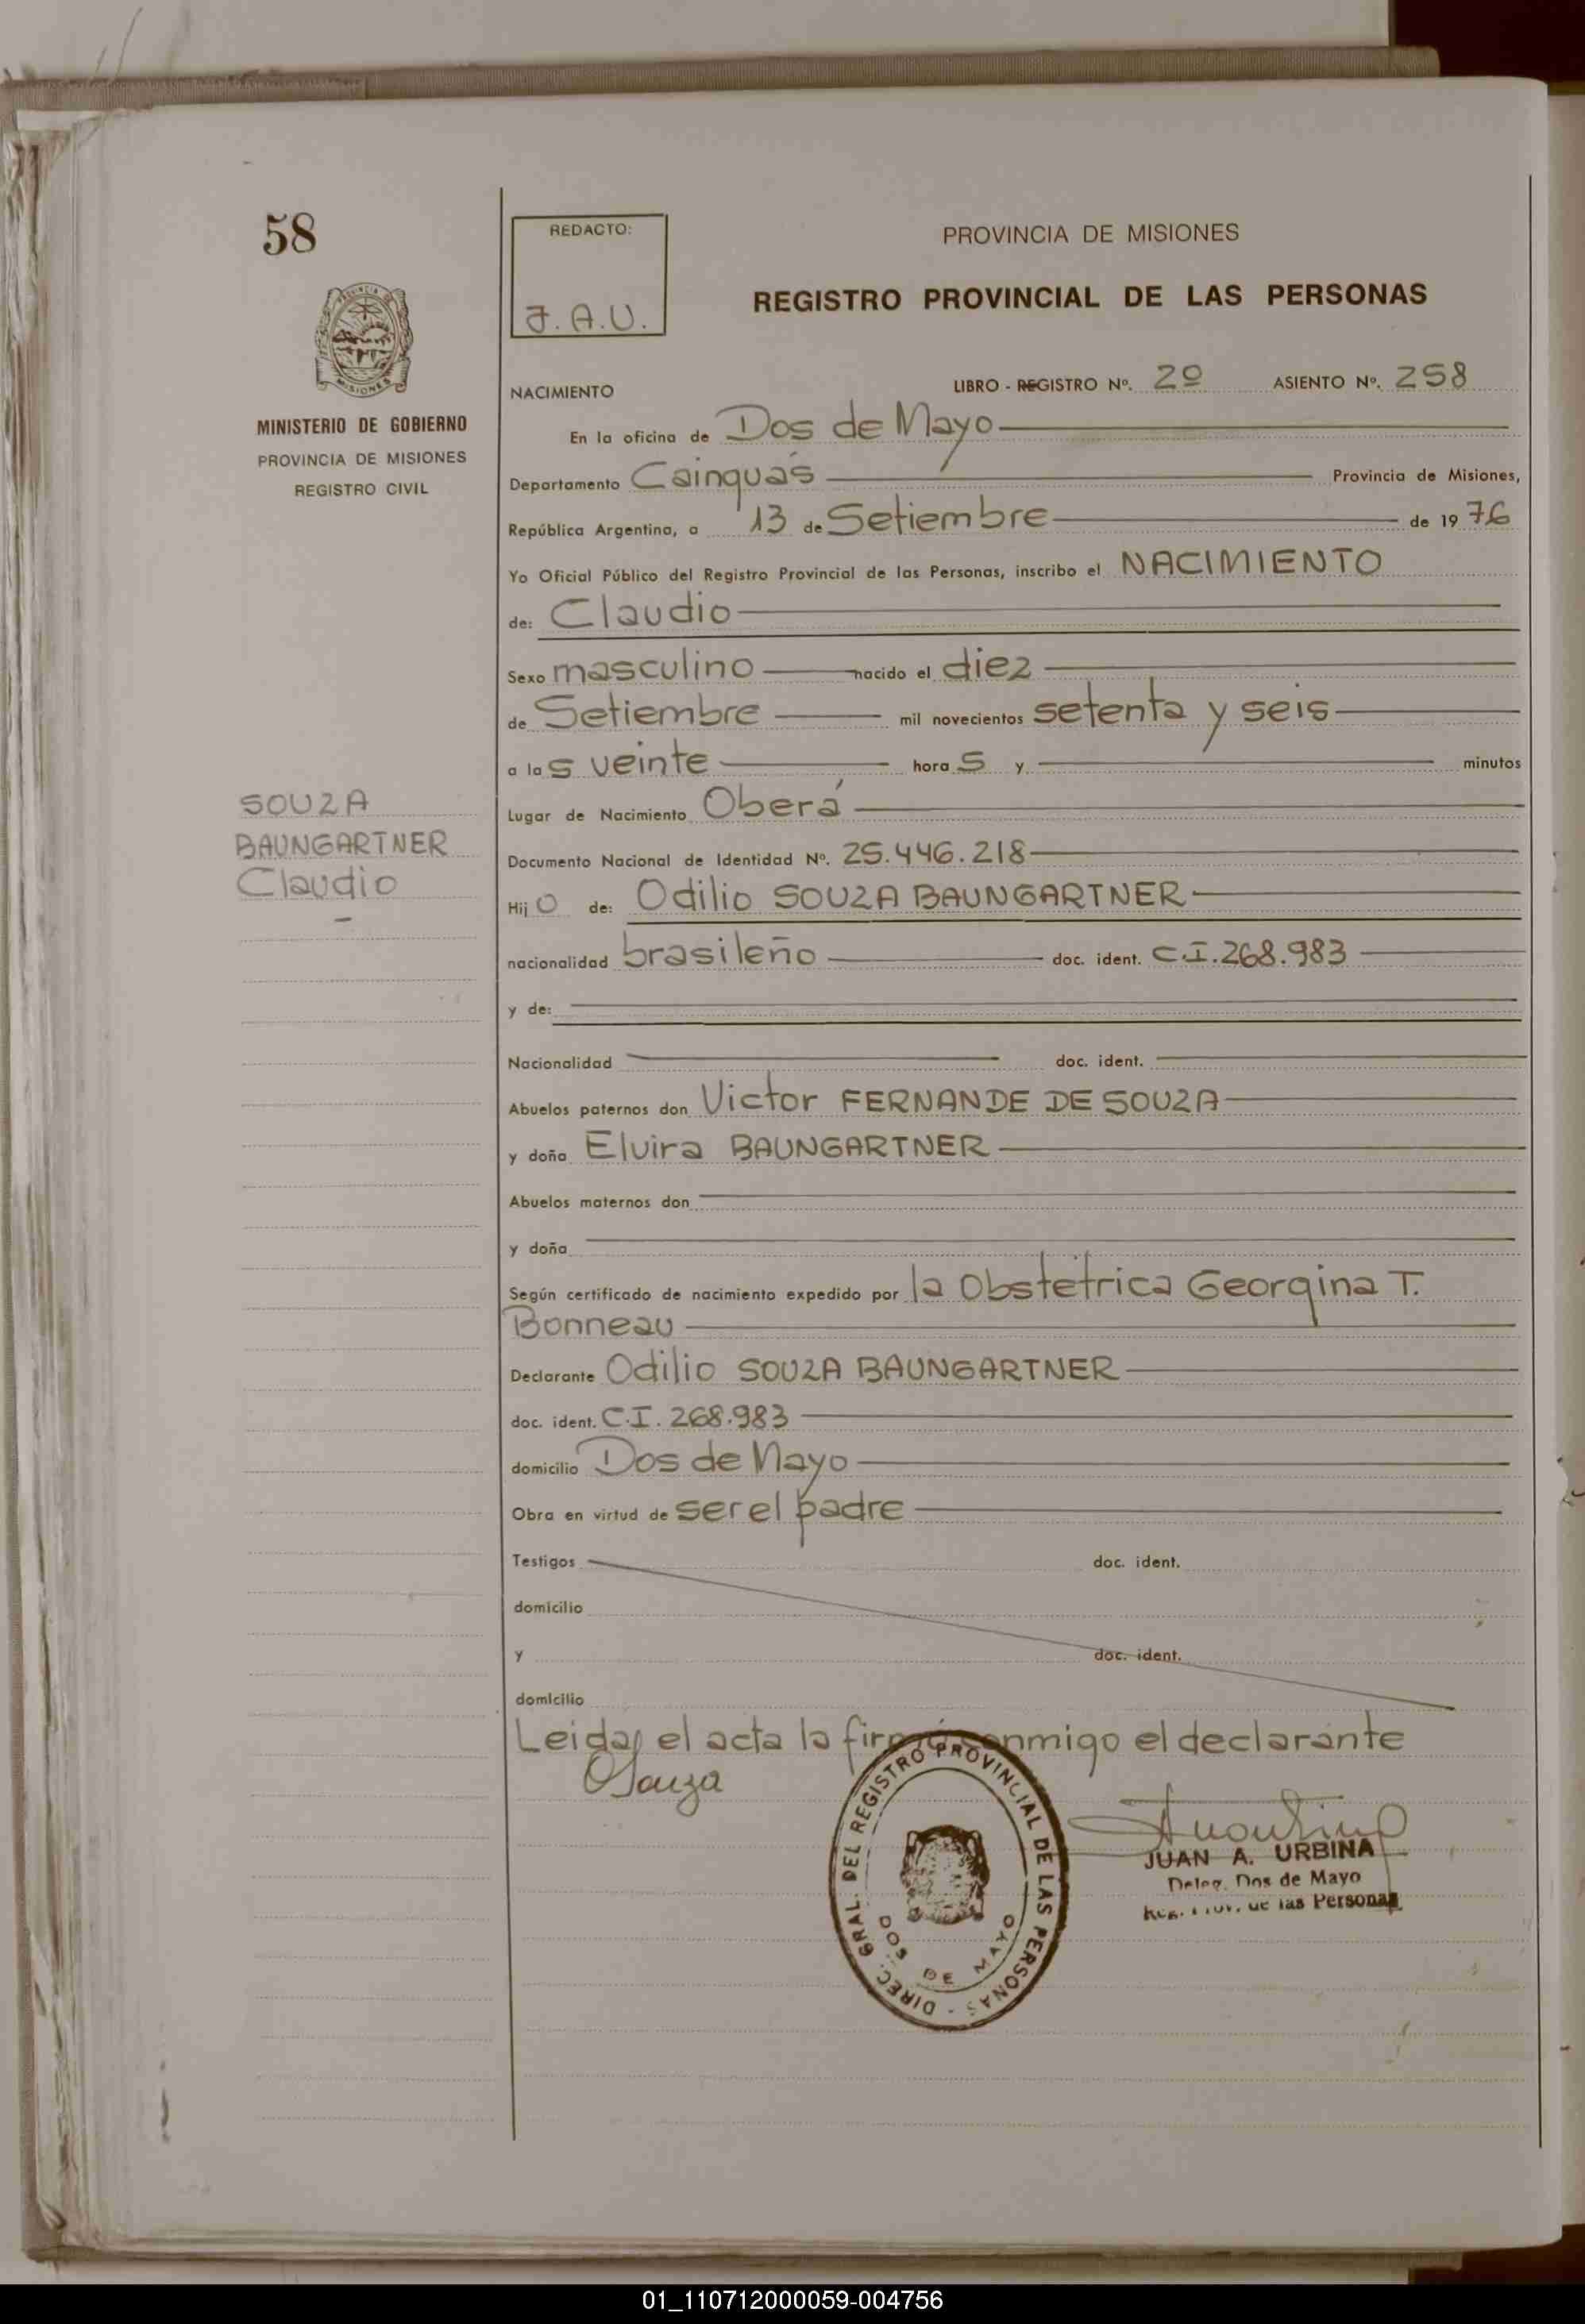 58
MINISTERIO DE GOBIERNO
PROVINCIA DE MISIONES
REGISTRO CIVIL
SOUZA
BAUNGARTNER
Claudio
REDACTO:
J.A.U.
PROVINCIA DE MISIONES
REGISTRO PROVINCIAL DE LAS PERSONAS
NACIMIENTO LIBRO - REGISTRO Nº. 2º ASIENTO Nº. 258
En la oficina de Dos de Mayo
Departamento Cainguás Provincia de Misiones,
República Argentina, a 13 de Setiembre de 1976
Yo Oficial Público del Registro Provincial de las Personas, inscribo el NACIMIENTO
de: Claudio
Sexo masculino nacido el diez
de Setiembre mil novecientos setenta y seis
a las veinte horas y minutos
Lugar de Nacimiento Oberá
Documento Nacional de Identidad Nº. 25.446.218
Hijo de: Odilio SOUZA BAUNGARTNER
nacionalidad brasileño doc. ident. C.I.268.983
y de:
Nacionalidad doc. ident.
Abuelos paternos don Victor FERNANDE DE SOUZA
y doña Elvira BAUNGARTNER
Abuelos maternos don
y doña
Según certificado de nacimiento expedido por la Obstétrica Georgina T.
Bonneau
Declarante Odilio SOUZA BAUNGARTNER
doc. ident. C.I. 268.983
domicilio Dos de Mayo
Obra en virtud de ser el padre
Testigos doc. ident.
domicilio
y doc. ident.
domicilio
Leida el acta la firmó conmigo el declarante
OSouza
DIREC. GRAL. DEL REGISTRO PROVINCIAL DE LAS PERSONAS -
DOS DE MAYO
JUAN A. URBINA
Deleg. Dos de Mayo
Reg. Prov. de las Personas
01_110712000059-004756